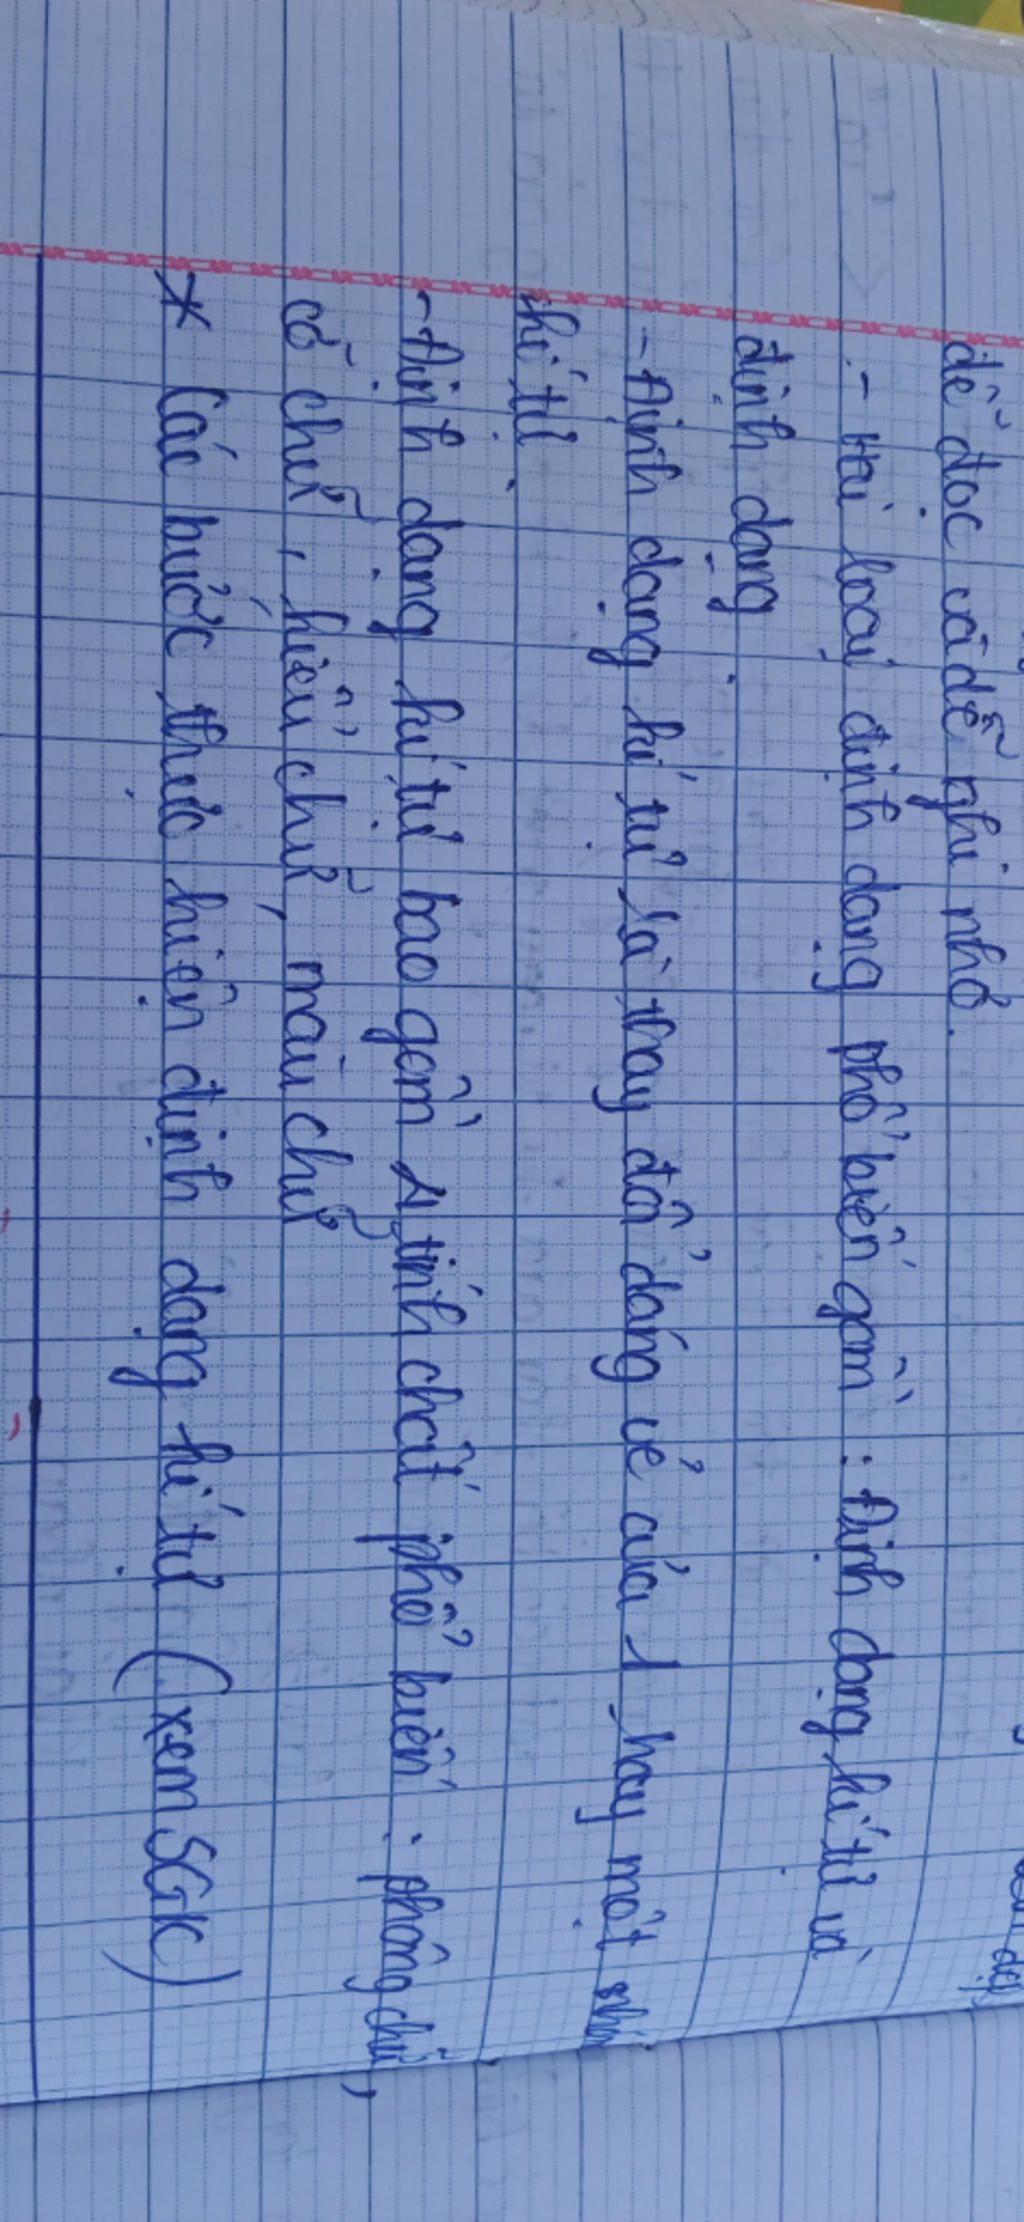 để đọc và dễ ghi nhớ.
- Hai loại định dạng phổ biến gồm : Định dạng kí tự và
định dạng
- Định dạng kí tự là thay đổi dáng vẻ của 1 hay một nhó
kí tự.
- Định dạng kí tự bao gồm 4 tính chất phổ biến : phông chữ,
cỡ chữ, kiểu chữ, màu chữ
* Các bước thực hiện định dạng kí tự (xem SGK)